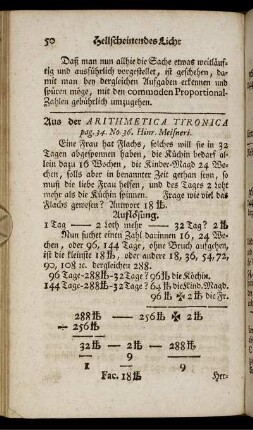 50 Hellscheinendes Licht
Daß man nun allhie die Sache etwas weitläuf-
tig und ausführlich vorgestellet, ist geschehen, da-
mit man bey dergleichen Aufgaben erkennen und
spüren möge, mit den commoden Proportional-
Zahlen gebührlich umzugehen.
Aus der ARITHMETICA TIRONICA
pag. 34. No 36. Hinr. Meisneri.
Eine Frau hat Flachs, solches will sie in 32
Tagen abgesponnen haben, die Küchin bedarf al-
lein dazu 16 Wochen, die Kinder-Magd 24 Wo-
chen, solls aber in benannter Zeit gethan seyn, so
muß die liebe Frau helfen, und des Tages 2 loht
mehr als die Küchin spinnen. Frage wie viel das
Flachs gewesen? Antwort 18 ℔.
Auflösung.
1 Tag — 2 loth mehr — 32 Tag? 2 ℔
Nun suchet einen Zahl darinnen 16, 24 Wo-
chen, oder 96, 144 Tage, ohne Bruch aufgehen,
ist die kleinste 18 ℔, oder andere 18, 36, 54, 72,
90, 108 ꝛc. dergleichen 288.
96 Tage-288 ℔-32 Tage? 96 ℔ die Köchin.
144 Tage-288 ℔-32 Tage? 64 ℔ die Kind. Magd.
96 ℔ ✠ 2 ℔ die Fr.
288 ℔ — 256 ℔ ✠ 2 ℔
÷ 256 ℔
32 ℔ — 2 ℔ — 288 ℔
1 9 9
Fac. 18 ℔ Her-